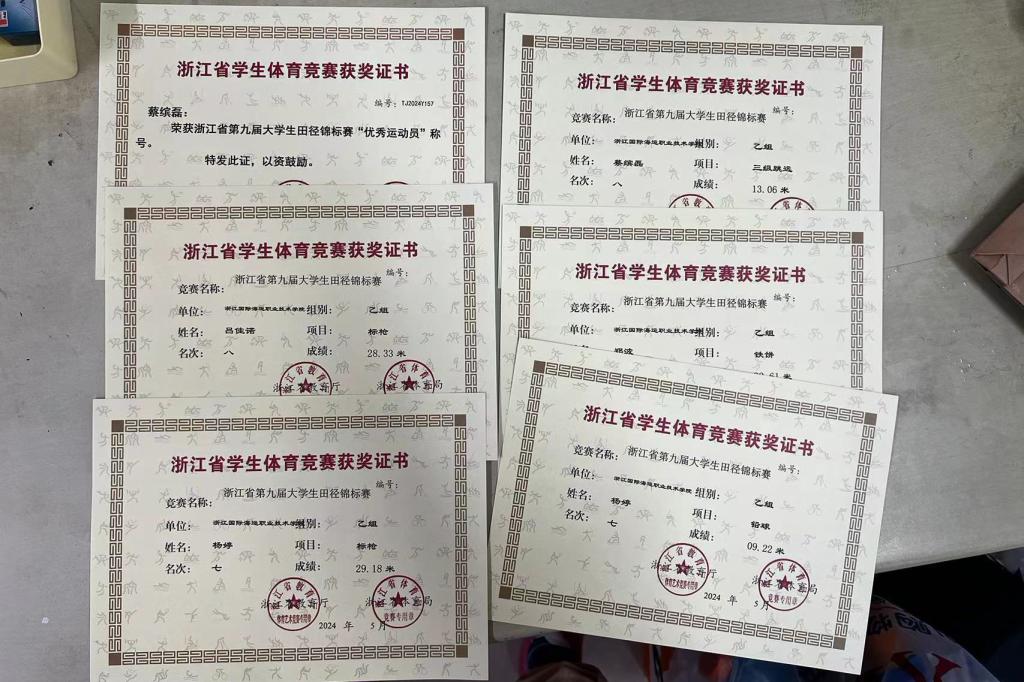 浙江省学生体育竞赛获奖证书
编号：TJ2024Y157
蔡缤磊：
荣获浙江省第九届大学生田径锦标赛“优秀运动员”称
号。
特发此证，以资鼓励。
浙江省学生体育竞赛获奖证书
编号：
竞赛名称： 浙江省第九届大学生田径锦标赛
单位： 浙江国际海运职业技术学院 组别： 乙组
姓名： 蔡缤磊 项目： 三级跳远
名次： 八 成绩： 13.06 米
浙江省学生体育竞赛获奖证书
编号：
竞赛名称： 浙江省第九届大学生田径锦标赛
单位： 浙江国际海运职业技术学院 组别： 乙组
姓名： 吕佳诺 项目： 标枪
名次： 八 成绩： 28.33 米
浙江省教育厅 浙江省体育局
浙江省学生体育竞赛获奖证书
编号：
竞赛名称： 浙江省第九届大学生田径锦标赛
单位： 浙江国际海运职业技术学院 组别： 乙组
项目： 铁饼
浙江省学生体育竞赛获奖证书
编号：
竞赛名称： 浙江省第九届大学生田径锦标赛
单位： 浙江国际海运职业技术学院 组别： 乙组
姓名： 杨婷 项目： 标枪
名次： 七 成绩： 29.18 米
浙江省教育厅 浙江省体育局
体育艺术竞赛专用章 竞赛专用章
2024 年 5 月
浙江省学生体育竞赛获奖证书
编号：
竞赛名称： 浙江省第九届大学生田径锦标赛
单位： 浙江国际海运职业技术学院 组别： 乙组
姓名： 杨婷 项目： 铅球
名次： 七 成绩： 09.22 米
浙江省教育厅 浙江省体育局
体育艺术竞赛专用章 竞赛专用章
2024 年 5 月